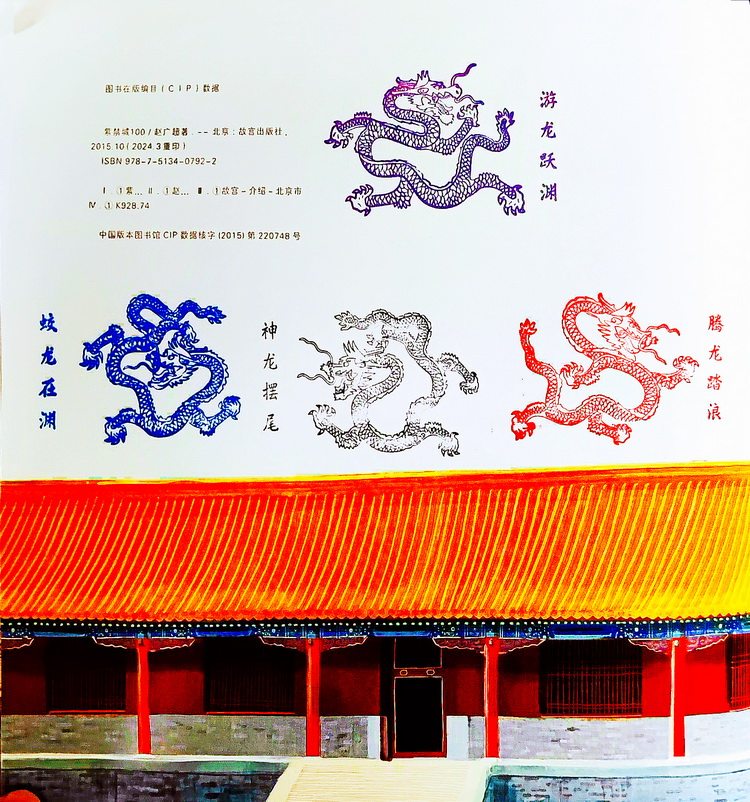 图书在版编目(CIP)数据
紫禁城100/赵广超著. -- 北京:故宫出版社,
2015.10(2024.3重印)
ISBN 978-7-5134-0792-2
Ⅰ.①紫… Ⅱ.①赵… Ⅲ.①故宫-介绍-北京市
Ⅳ.①K928.74
中国版本图书馆CIP数据核字(2015)第220748号
游龙跃渊
蛟龙在渊
神龙摆尾
腾龙踏浪